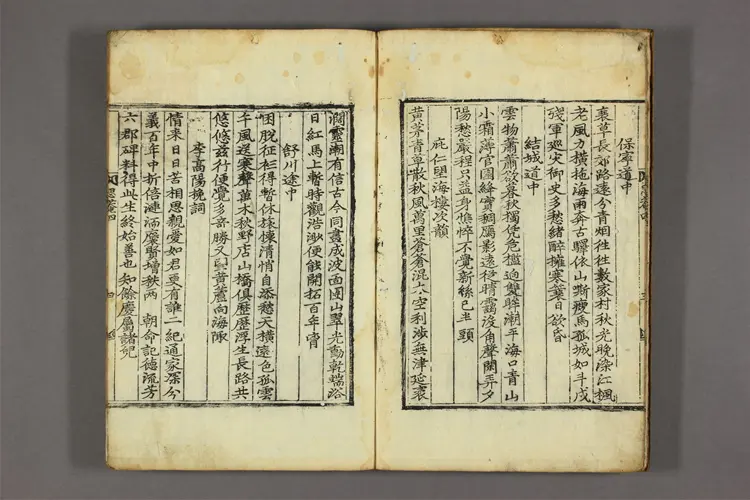 保寧道中
衰草長郊路遠分青烟往往數家村秋光晚染江楓
老風力橫拖海雨奔古驛依山嘶瘦馬孤城如斗戍
殘軍廵灾御史多愁緒醉擁寒葉日欲昏
結城道中
雲物蕭蕭欲暮秋獨凭危檻迥雙眸潮平海口青山
小霜薄官園絳實稠鴈影遠徑晴靄沒角聲閑弄夕
陽愁嚴程只益身憔悴不覺新絲已半頭
庇仁望海樓次韻
黃茅青草散秋風萬里蒼蒼混太空利涉無津延袤
濶靈潮有信古今同晝成波面團山翠光動乾端浴
日紅馬上暫時觀浩渺便能開拓百年胷
舒川途中
困脫征衫得暫休旅懷清悄自添愁天橫遠色孤雲
千風送寒聲萬木秋野店山橋俱歷歷浮生長路共
悠悠茲行便覺多奇勝又與黃蘆向海陬
李高陽挽詞
情來日日苦相思親愛如君更有誰二紀通家深分
義百年中折倍漣洏慶賢增秩兩 朝命記德流芳
六郡碑料得此生終始善也知餘慶屬諸兒